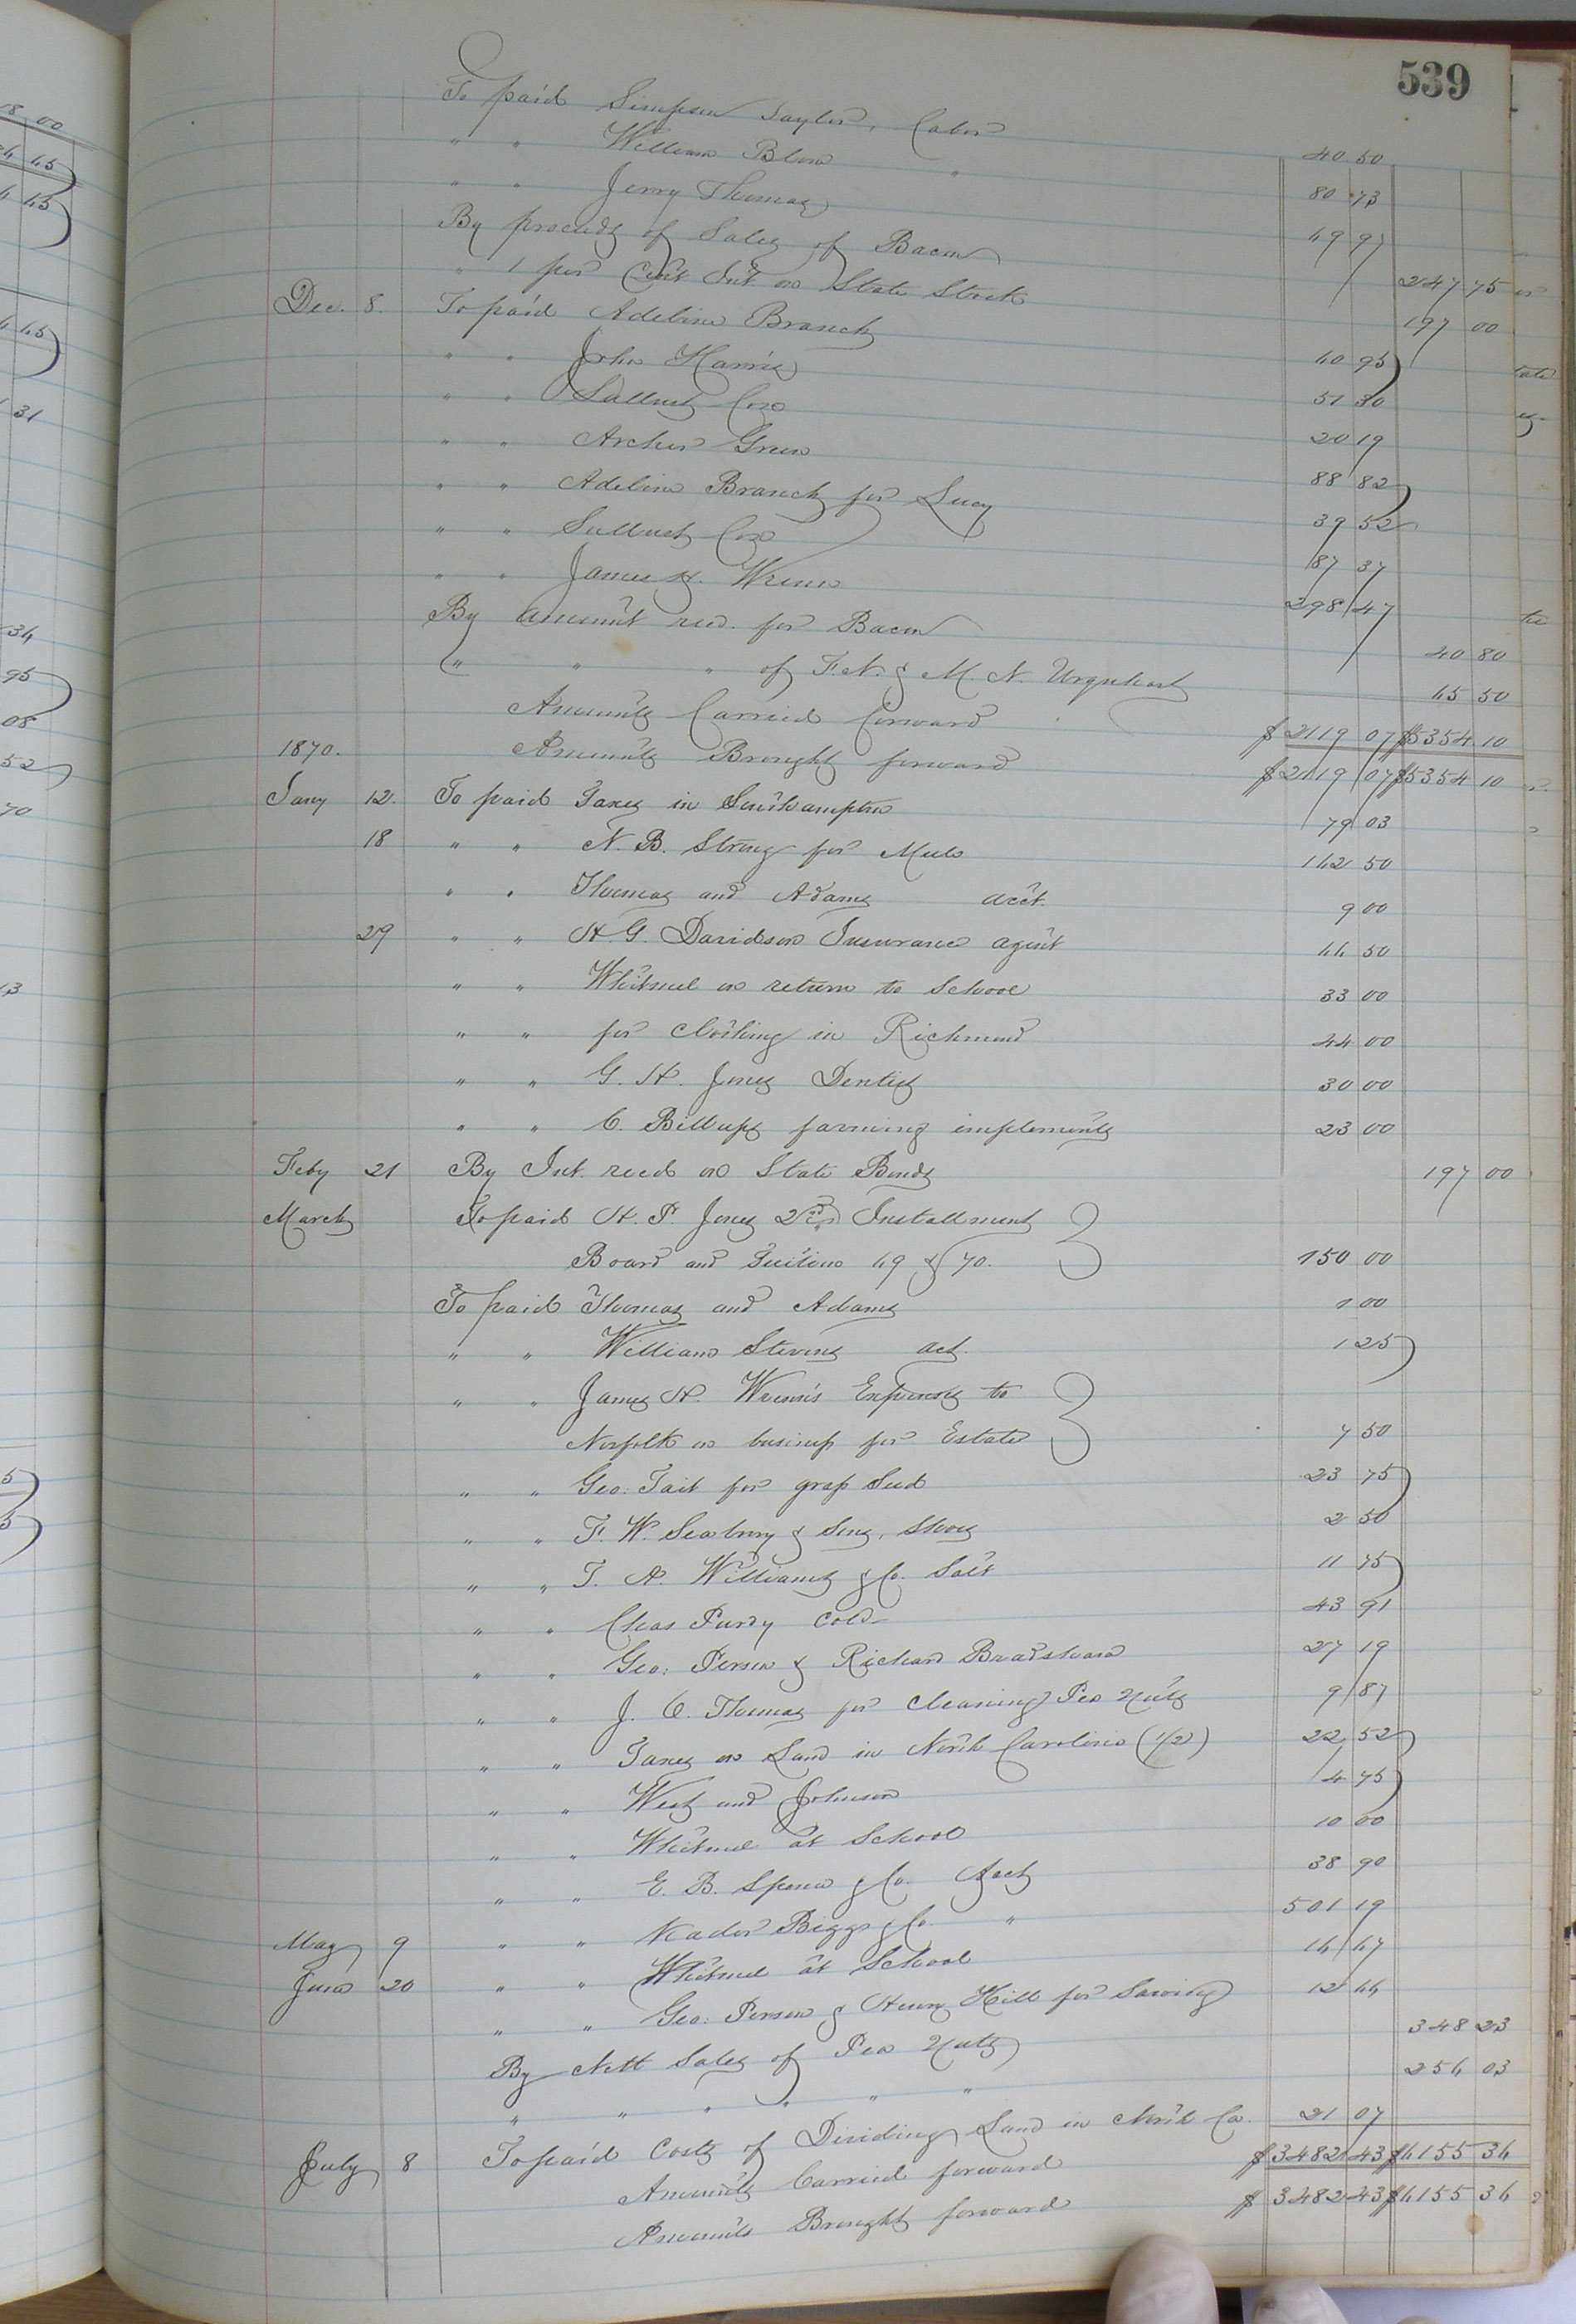 539
To paid Simpson Taylor, Labor 40 50
" " William Blow " 80 73
" " Jerry Thomas 49 97
By proceeds of Sales of Bacon 247 75
" 1 per Cent Int on State Stock 197 00
Dec. 8. To paid Adeline Branch 40 95
" " John Harris 51 30
" " Sallust Cox 20 19
" " Archer Green 88 82
" " Adeline Branch for Lucy 39 52
" " Sallust Cox 87 37
" " James H. Wrenn 298 47
By amount recd. for Bacon 40 80
" " " of F. N. & M. N. Urquhart 45 50
Amounts Carried forward $2119 07 $5354 10
1870. Amounts Brought forward $2119 07 $5354 10
Jany 12. To paid Taxes in Southampton 79 03
18 " " N. B. Strong for Mule 142 50
" " Thomas and Adams acct. 9 00
29 " " H. G. Davidson Insurance agent 44 50
" " Whitmel on return to School 33 00
" " for clothing in Richmond 44 00
" " G. H. Jones Dentist 30 00
" " C. Billups farming implements 23 00
Feby 21 By Int. recd on State Bonds 197 00
March To paid H. P. Jones 2nd Installment
Board and Tuition 49 & 70. 150 00
To paid Thomas and Adams 1 00
" " William Stevens act. 1 25
" " James H. Wrenn's Expenses to
Norfolk on business for Estate 7 50
" " Geo: Tait for grass Seed 23 75
" " F. W. Seabury & Sons, Shoes 2 50
" " T. A. Williams & Co. Salt 11 75
" " Chas Purdy Cold 43 91
" " Geo: Person & Richard Bradshaw 27 19
" " J. C. Thomas for cleaning Pea Nuts 9 87
" " Taxes on Land in North Carolina (1/2) 22 52
" " West and Johnson 4 75
" " Whitmel at School 10 00
" " E. B. Spence & Co. Acct 38 90
May 9 " " Kader Biggs & Co. " 501 19
June 20 " " Whitmel at School 14 47
" " Geo: Person & Henry Hill for Sawing 12 44
By Nett Sales of Pea Nuts 348 23
" " " " " " 254 03
July 8 To paid Costs of Dividing Land in North Ca. 21 07
Amounts Carried forward $3482 43 $6155 36
Amounts Brought forward $3482 43 $6155 36